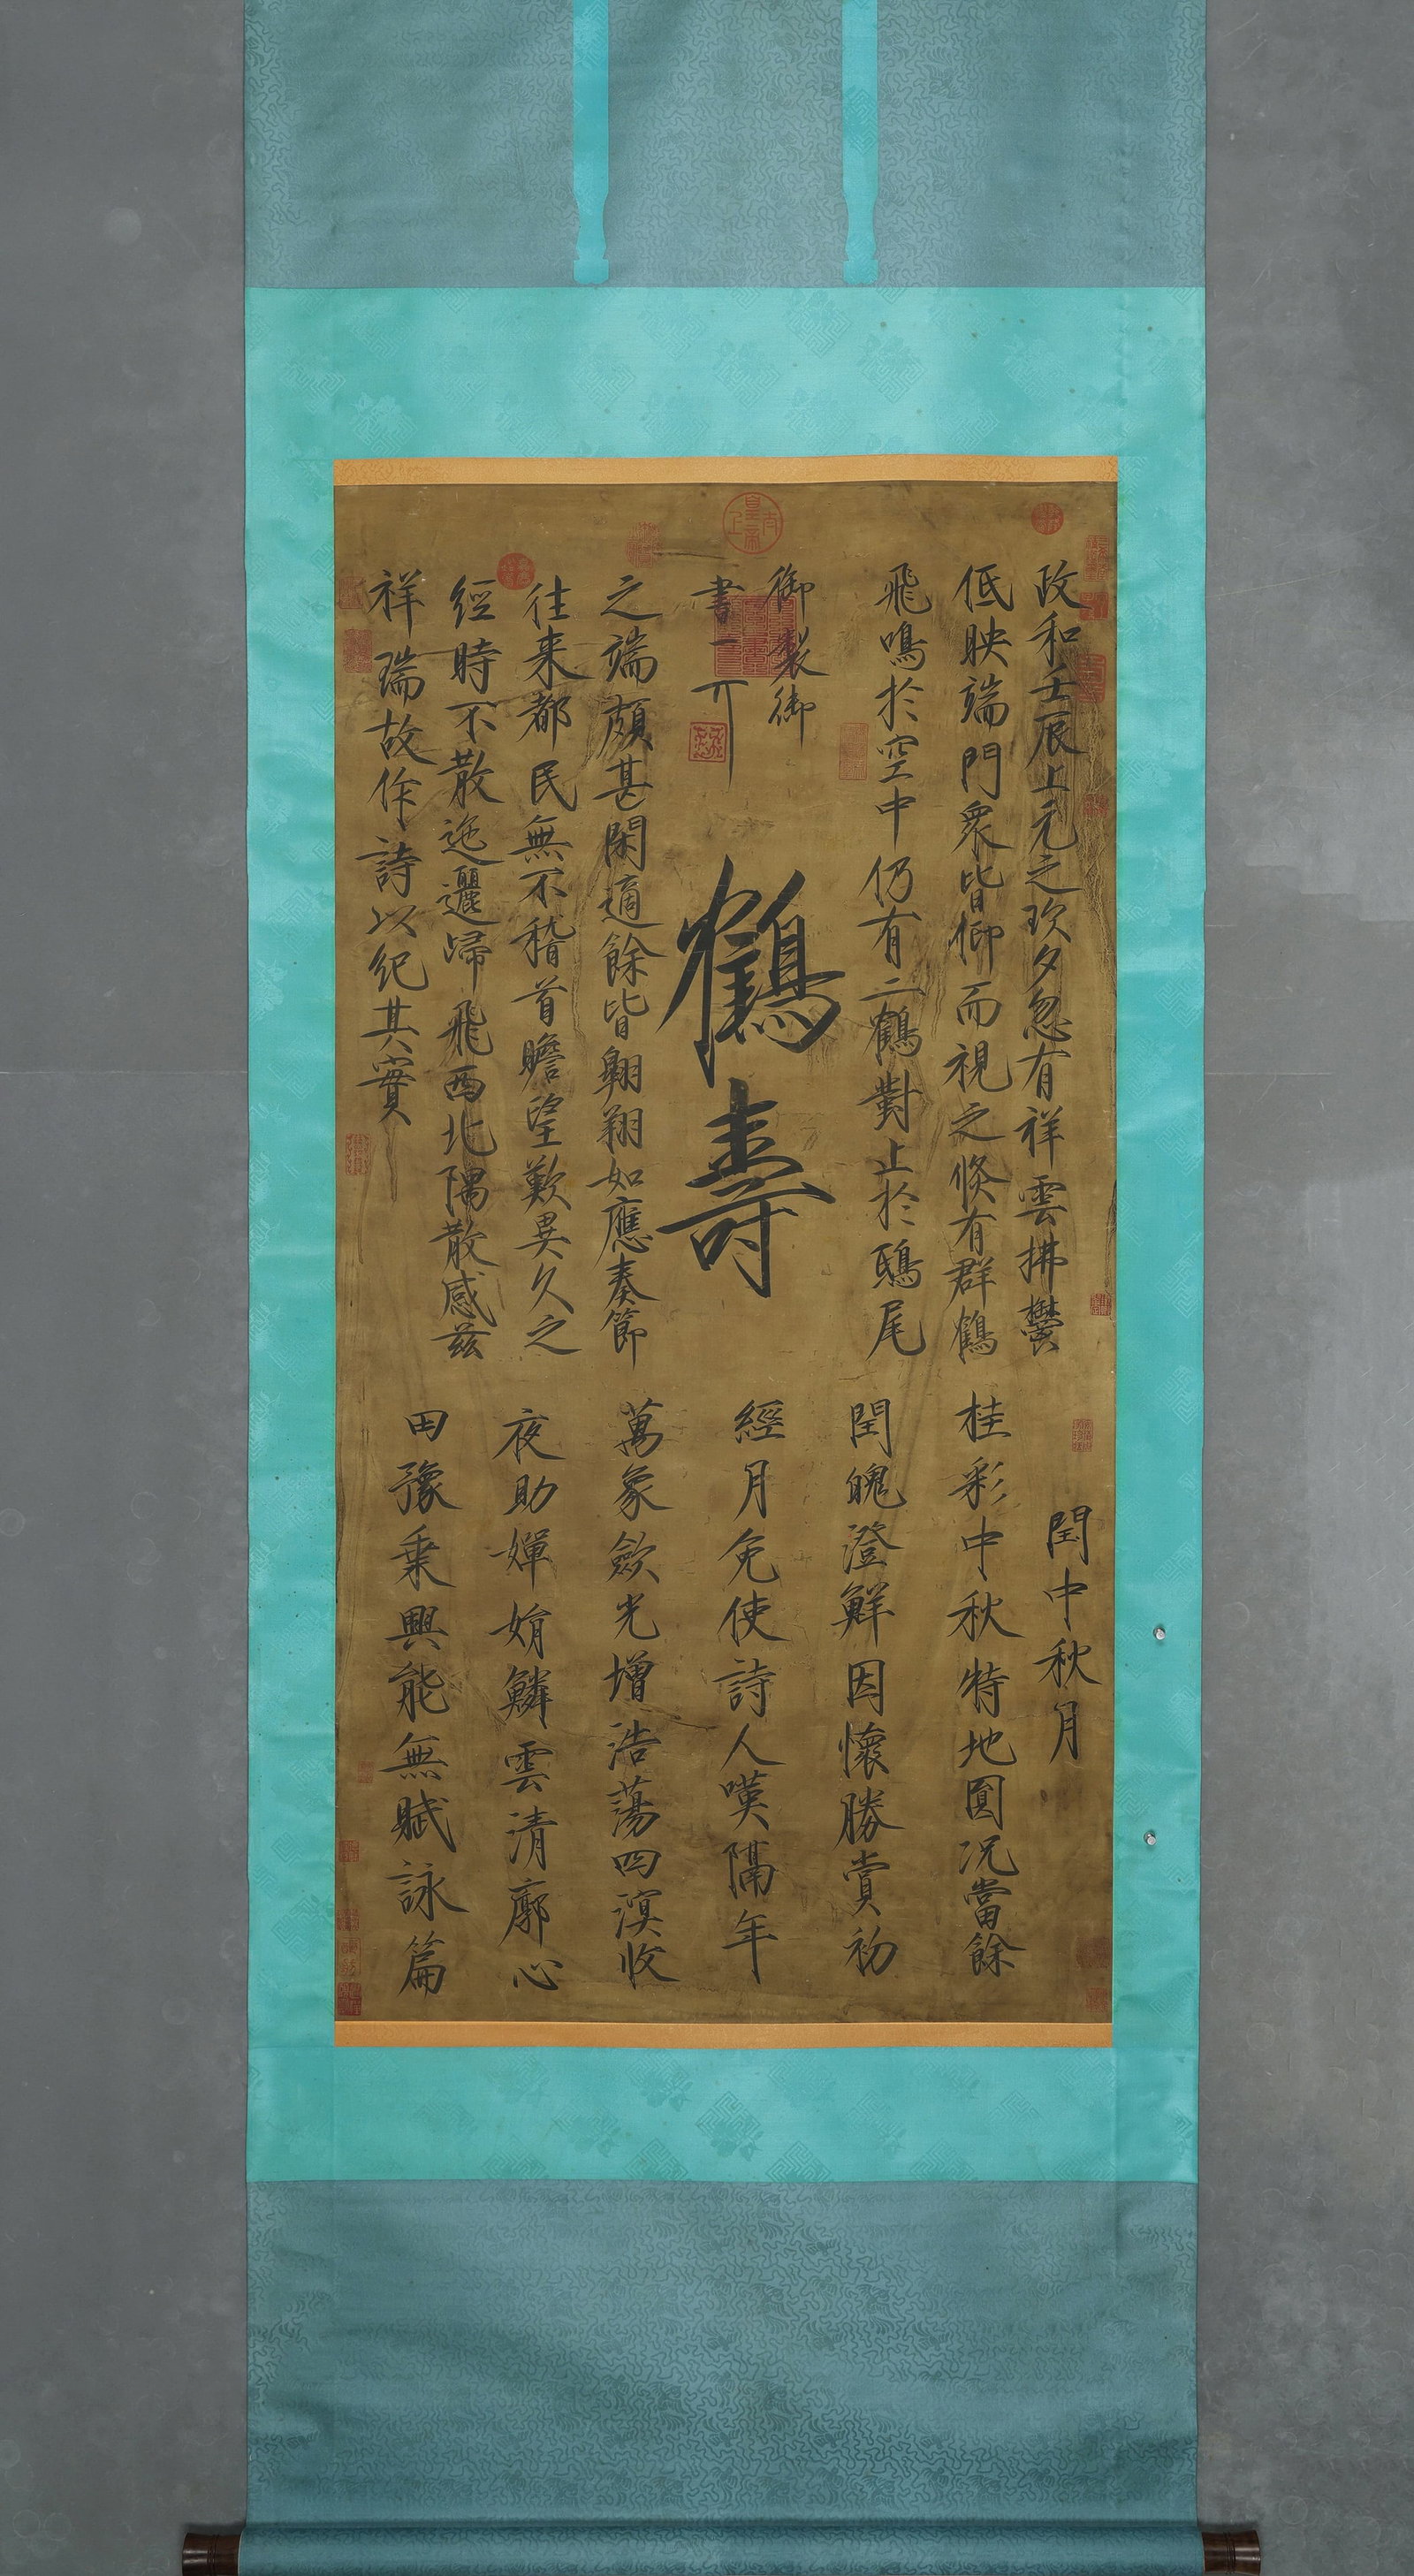 政和壬辰上元之次夕忽有祥雲拂鬱
低映端門衆皆仰而視之倏有群鶴
飛鳴於空中仍有二鶴對止於鴟尾
御製御
書
鶴壽
之端頗甚閑適餘皆翱翔如應奏節
往来都民無不稽首瞻望歎異久之
經時不散迤邐歸飛西北隅散感茲
祥瑞故作詩以紀其實
閏中秋月
桂彩中秋特地圓況當餘
閏魄澄鮮因懷勝賞初
經月免使詩人嘆隔年
萬象斂光增浩蕩四溟收
夜助嬋娟鱗雲清廓心
田豫乘興能無賦詠篇